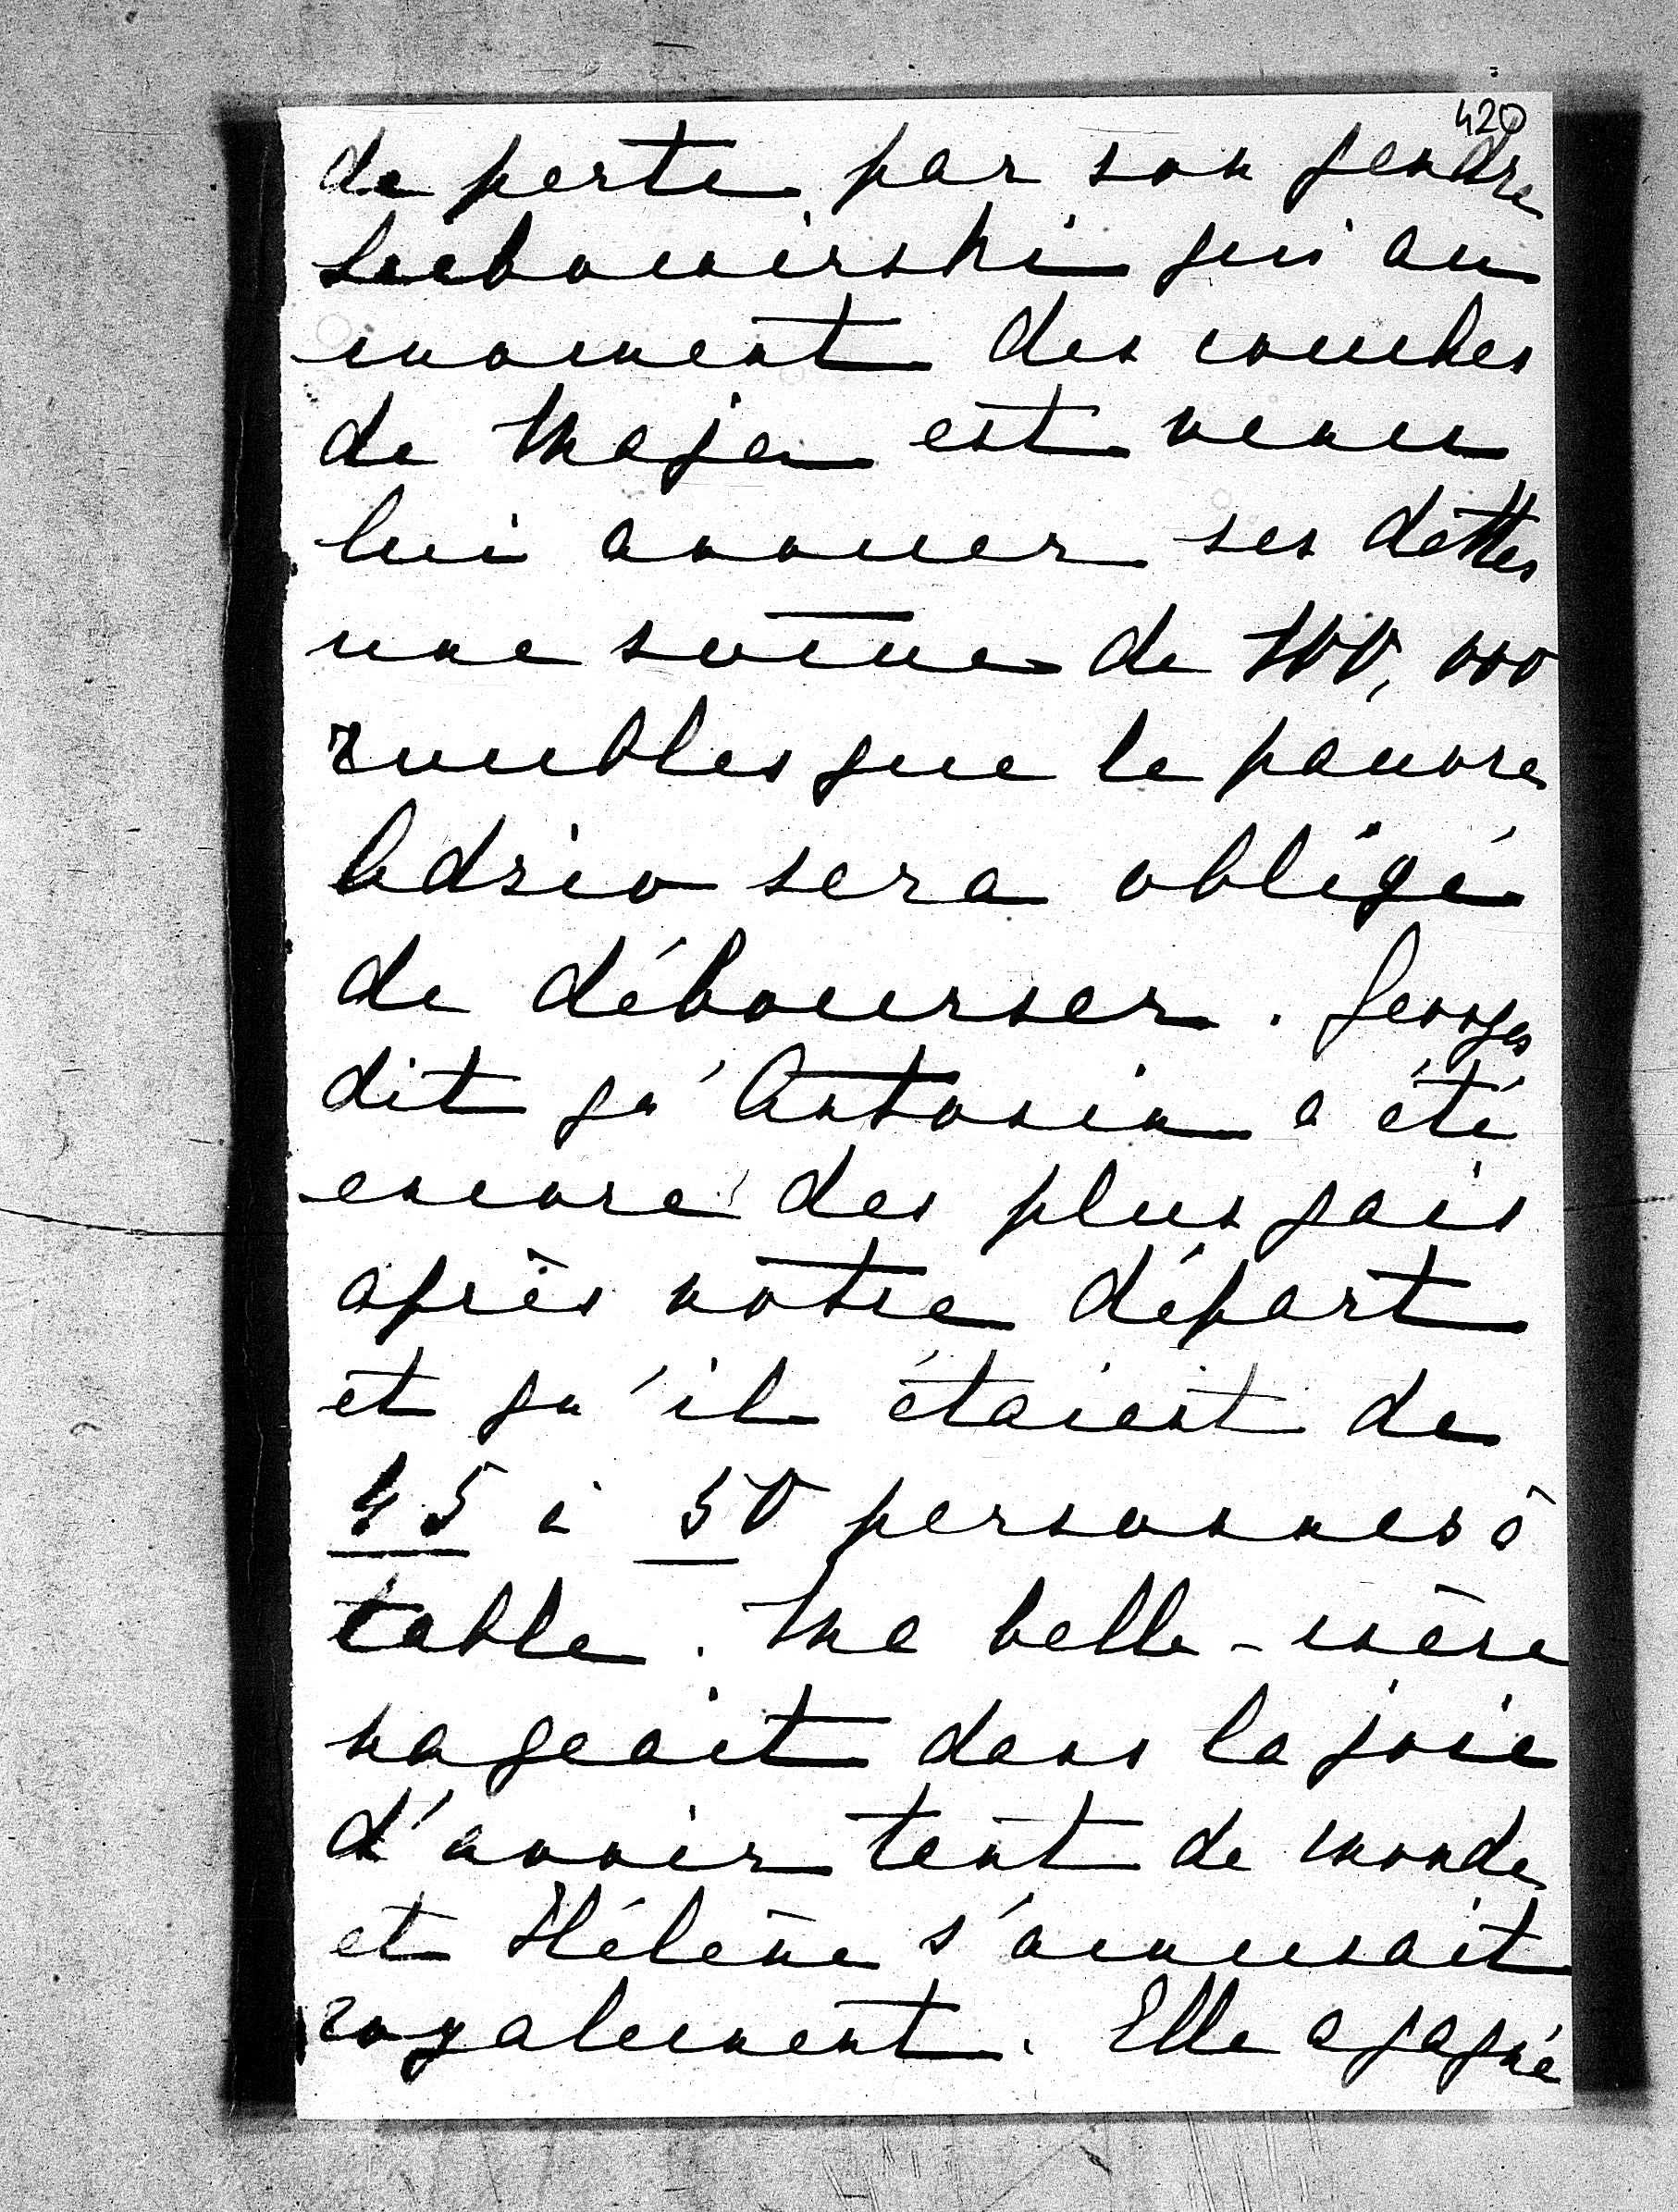 420
de perte par son gendre
Lubomirski qui au
moment des couches
de Maja est venu
lui avouer ses dettes
une somme de 100,000
roubles que le pauvre
Adzio sera obligé
de débourser. Georges
dit qu'Antonin a été
encore des plus gais
après notre départ
et qu'il étaient de
45 à 50 personnes à
table. Ma belle-mère
nageait dans la joie
d'avoir tant de monde
et Hélène s'amusait
royalement. Elle a gagné